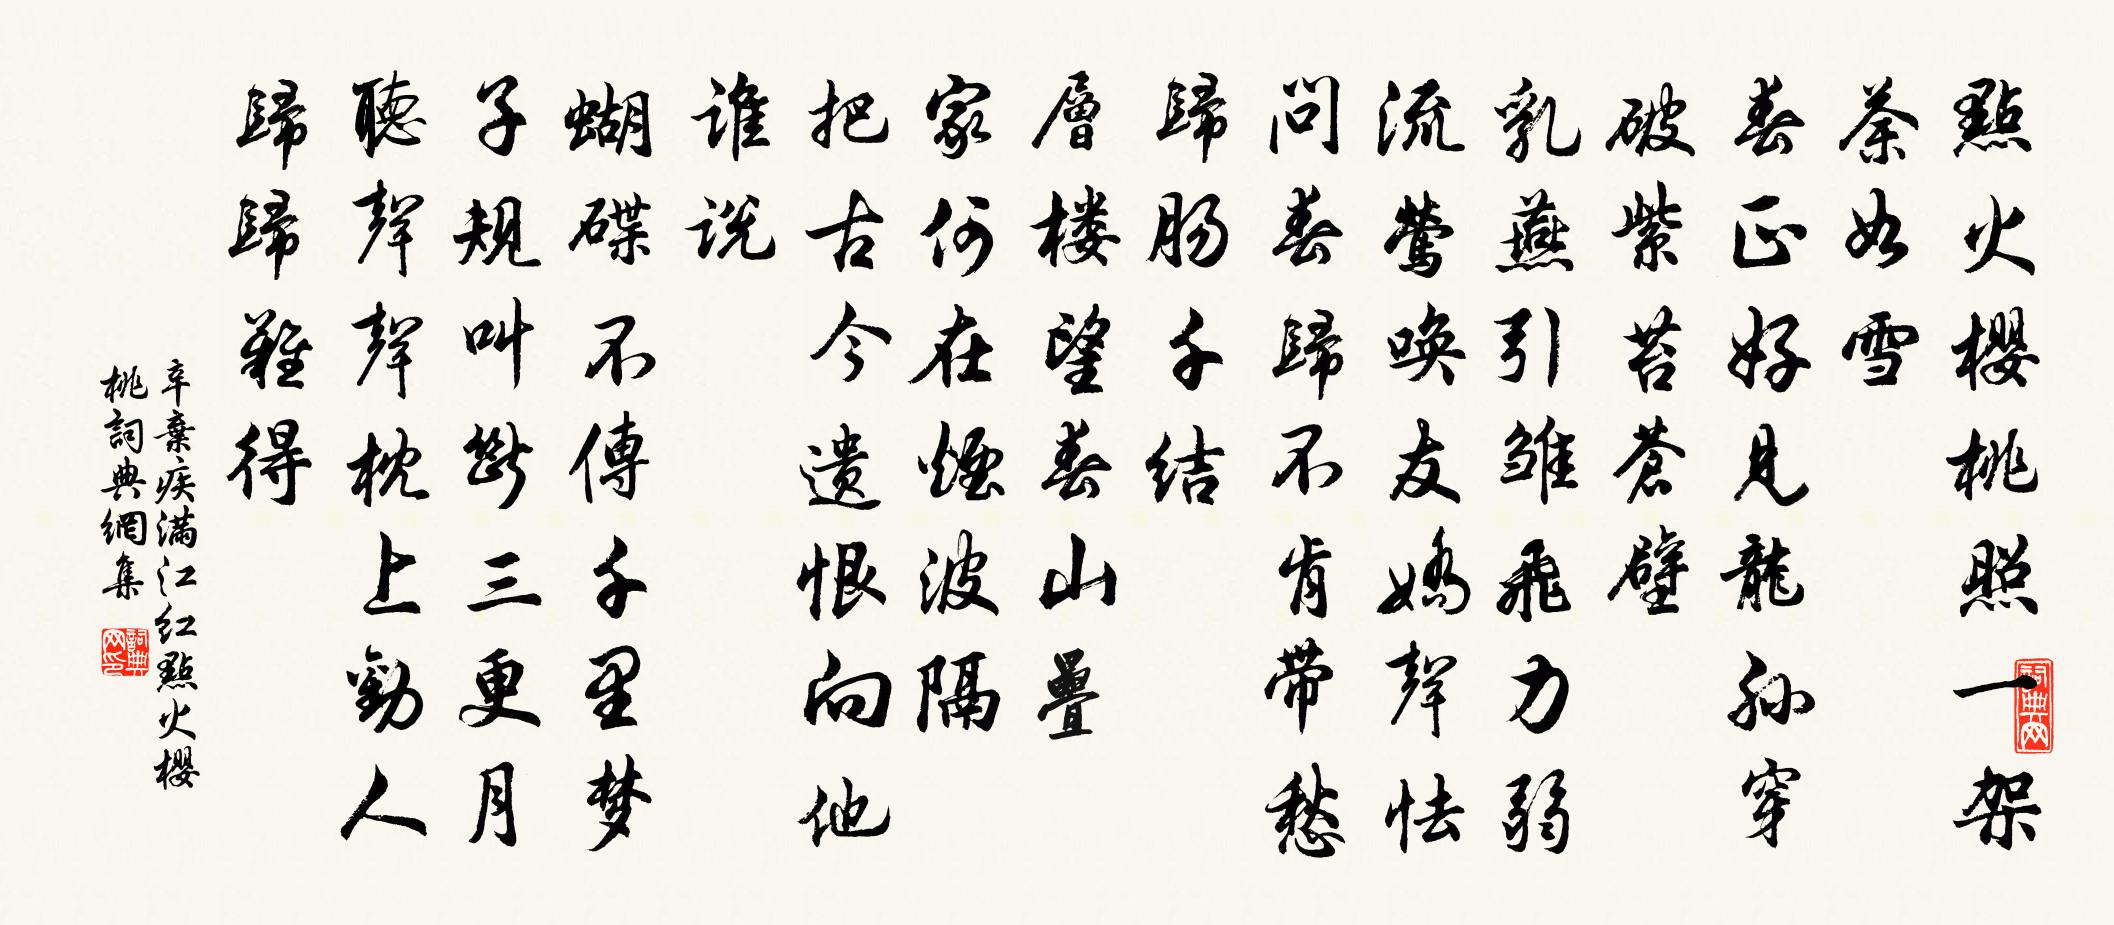 點火櫻桃照一架
荼如雪
春正好見龍孫穿
破紫苔蒼壁
乳燕引雛飛力弱
流鶯喚友嬌聲怯
問春歸不肯带愁
歸肠千结
層楼望春山疊
家何在煙波隔
把古今遗恨向他
谁说
蝴蝶不傳千里梦
子規叫斷三更月
聽聲聲枕上勸人
歸歸難得
辛棄疾满江红點火櫻
桃詞典網集
詞典网
詞典网印